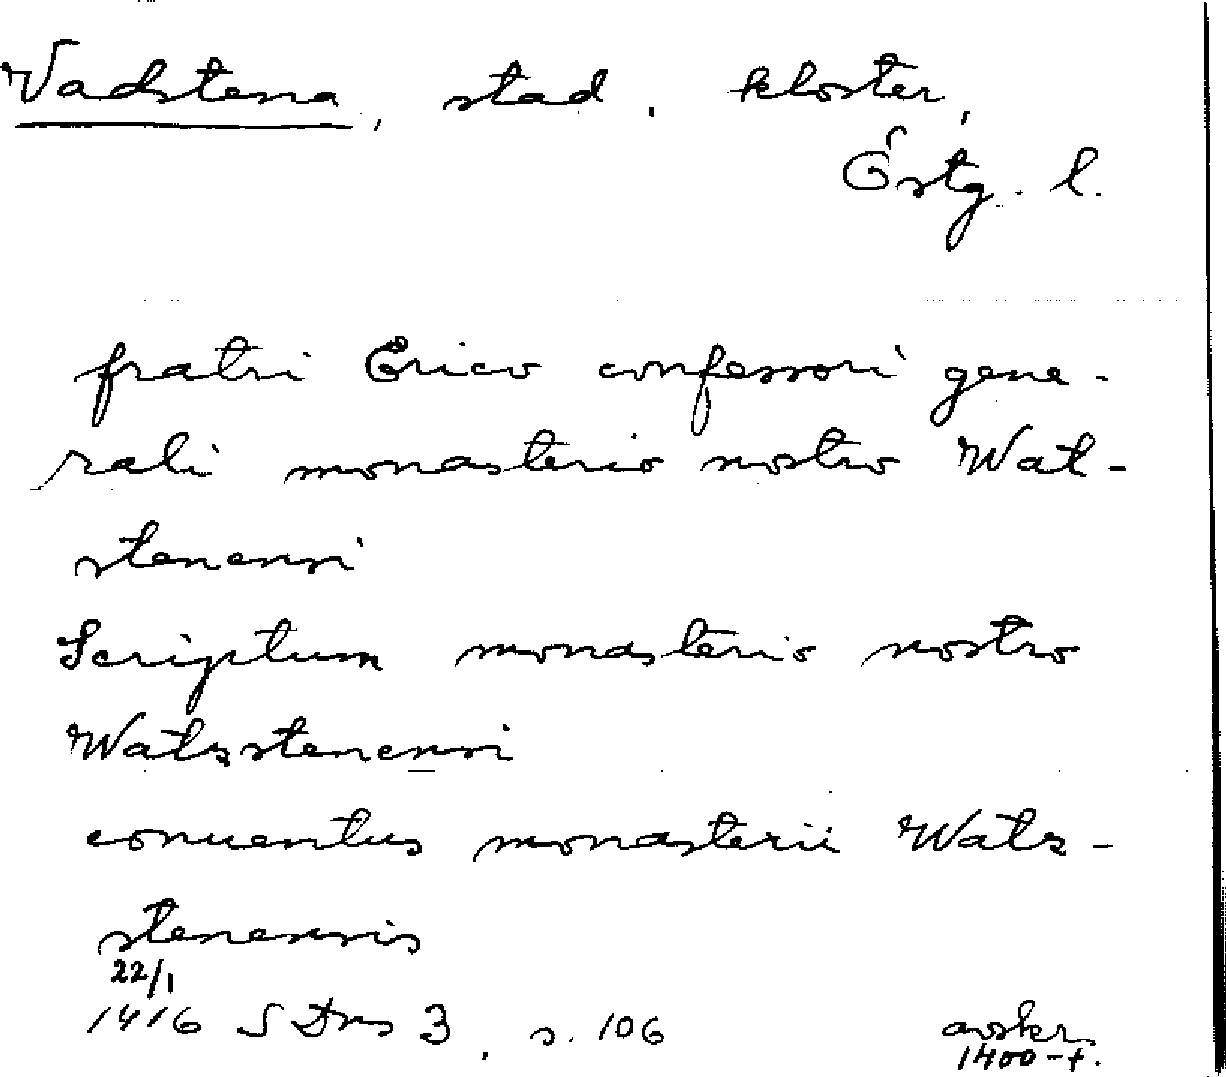 Vadstena, stad, kloster,
Östg. l.
fratri Erico confessori gene-
rali monasterio nostro Wat-
stenensi
Scriptum monasterio nostro
Watzstenensi
conuentus monasterii Watz-
stenensis
22/1
1416 SDns 3, s. 106 avskr.
1400-t.